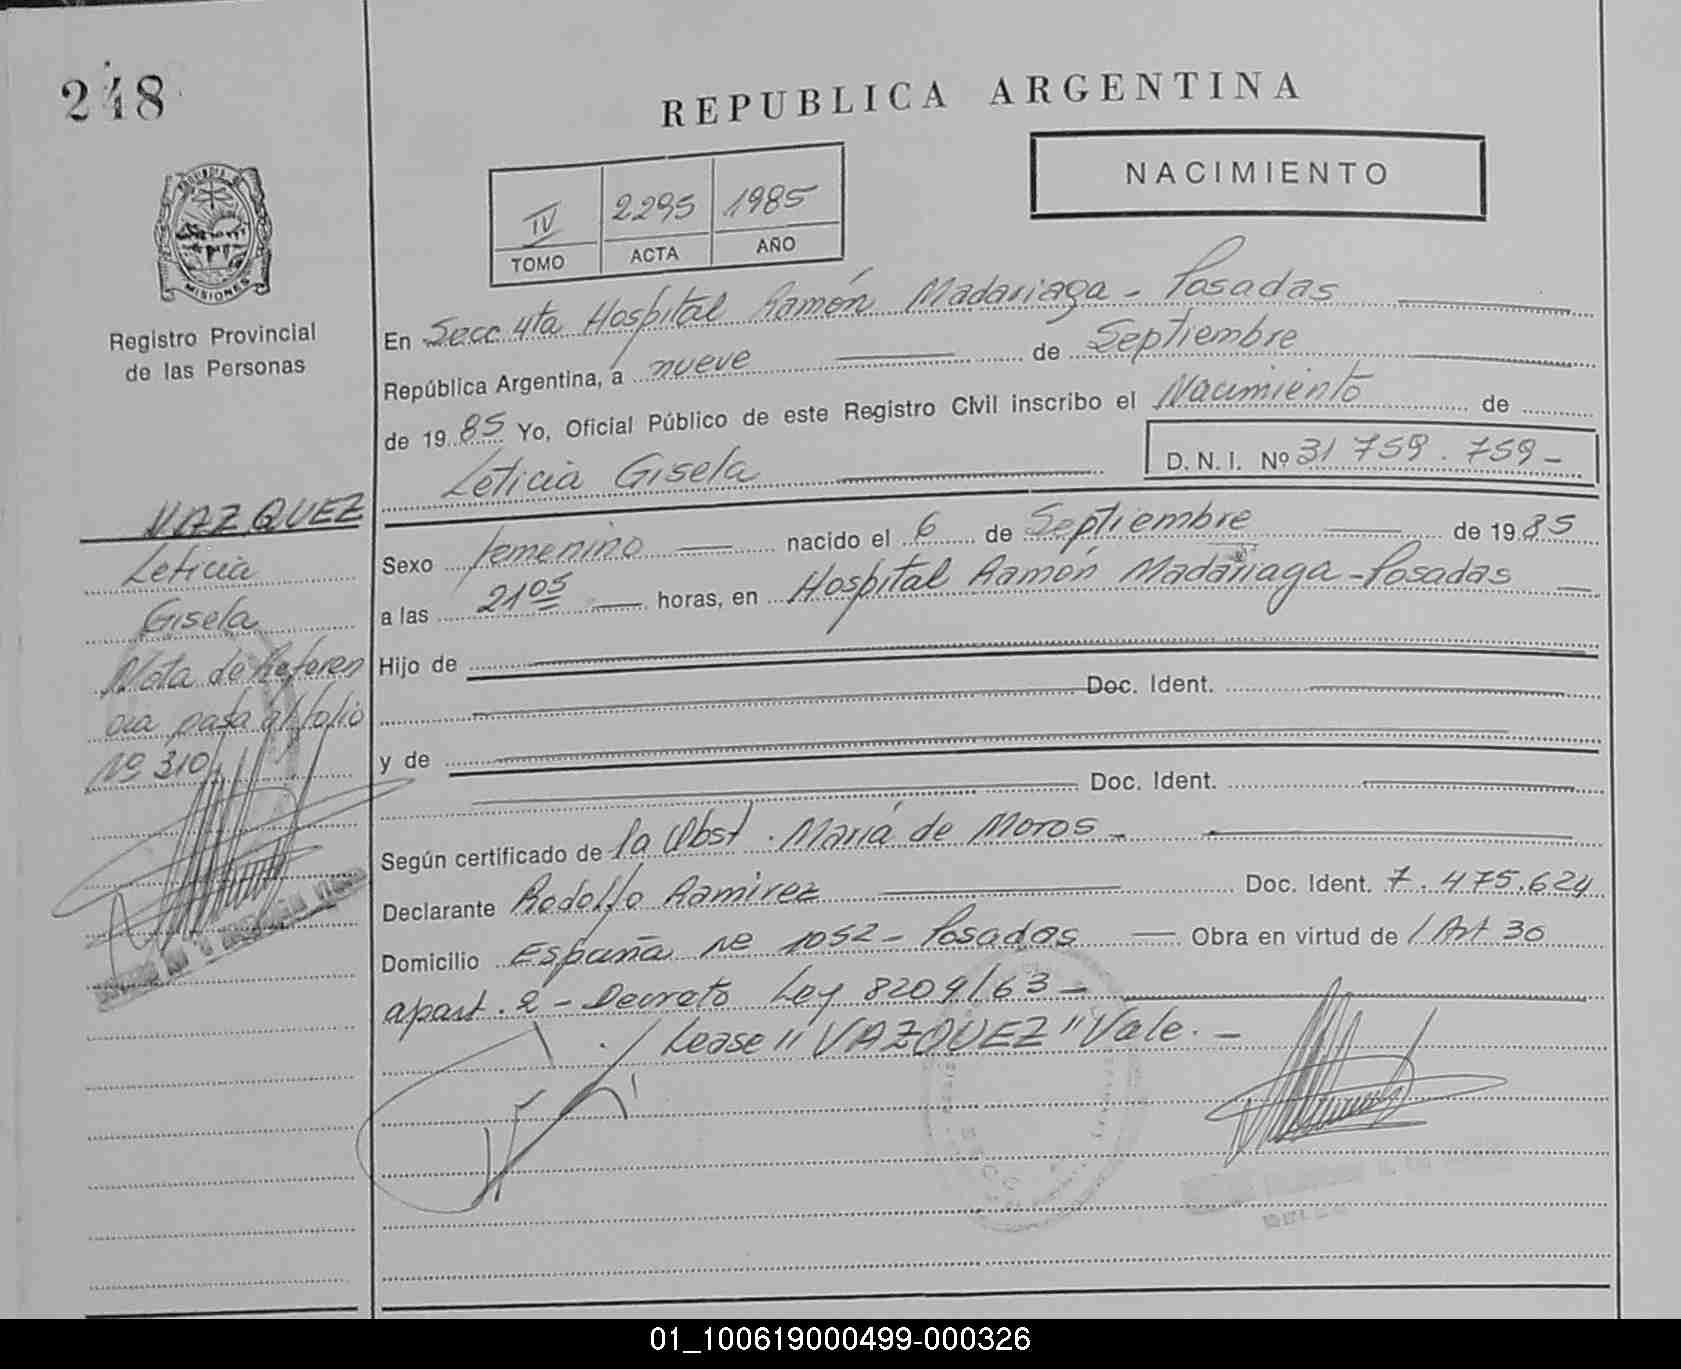 248
REPUBLICA ARGENTINA
NACIMIENTO
IV 2295 1985
TOMO ACTA AÑO
PROVINCIA DE
MISIONES
Registro Provincial
de las Personas
En Secc 4ta Hospital Ramón Madariaga - Posadas
República Argentina, a nueve de Septiembre
de 19 85 Yo, Oficial Público de este Registro Civil inscribo el Nacimiento de
Leticia Gisela D. N. I. Nº 31 759.759-
VAZQUEZ
Leticia
Gisela
Nota de Referen
cia pasa al folio
Nº 310
Sexo femenino nacido el 6 de Septiembre de 19 85
a las 21 05 horas, en Hospital Ramón Madariaga - Posadas
Hijo de
Doc. Ident.
y de
Doc. Ident.
Según certificado de la Obst. María de Moros -
Declarante Rodolfo Ramirez Doc. Ident. 7.475.624
Domicilio España Nº 1052 - Posadas Obra en virtud de / Art 30
apart. 2 - Decreto Ley 8204/63 -
./ Lease "VAZQUEZ" Vale. -
01_100619000499-000326